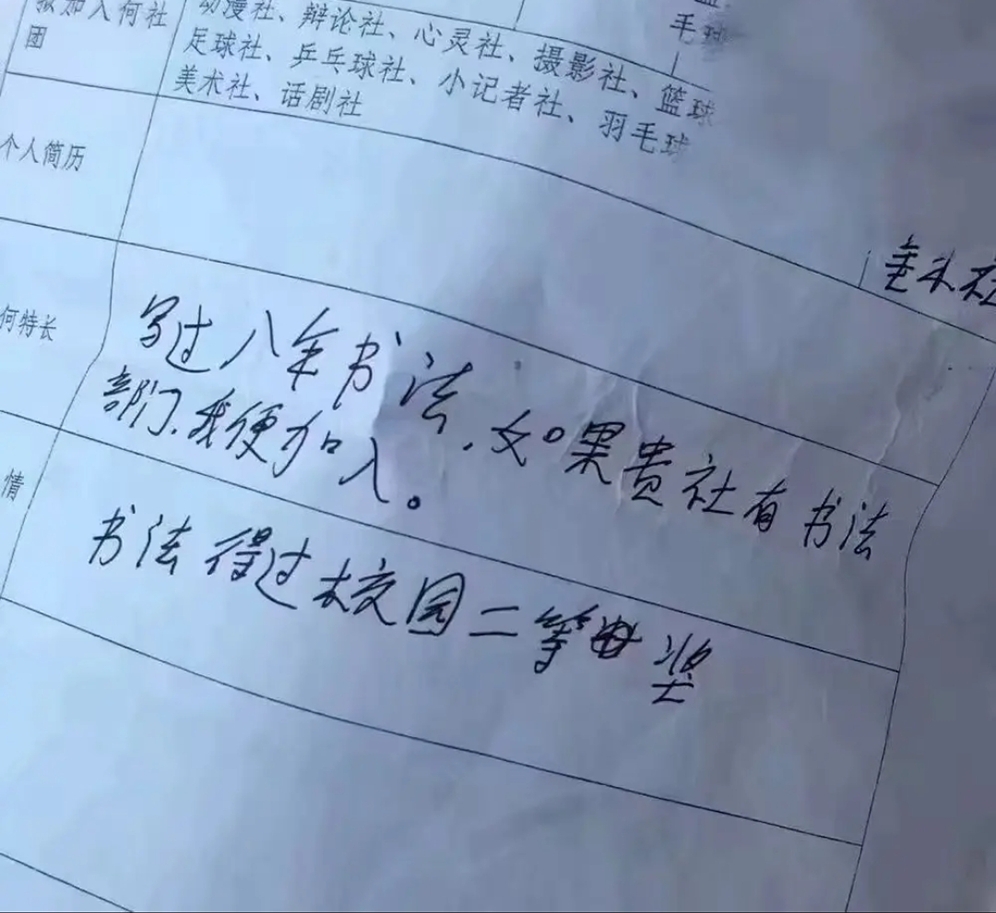 拟加入何社
团
动漫社、辩论社、心灵社、摄影社、篮球
足球社、乒乓球社、小记者社、羽毛球
美术社、话剧社
篮
毛球
个人简历
何特长
写过八年书法,如果贵社有书法
部门,我便加入。
情
书法得过校园二等奖